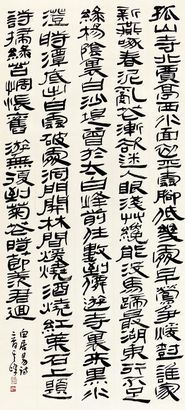 孤山寺北賈亭西水面初平雲腳低幾處早鶯爭暖樹誰家
新燕啄春泥亂花漸欲迷人眼淺草纔能沒馬蹄最愛湖東行不足
綠楊陰裏白沙堤曾於太白峰前住數到仙遊寺裏來黑水
澄時潭底出白雲破處洞門開林間煖酒燒紅葉石上題
詩掃綠苔惆悵舊遊無復到菊花時節羨君迴
白居易詩
二首